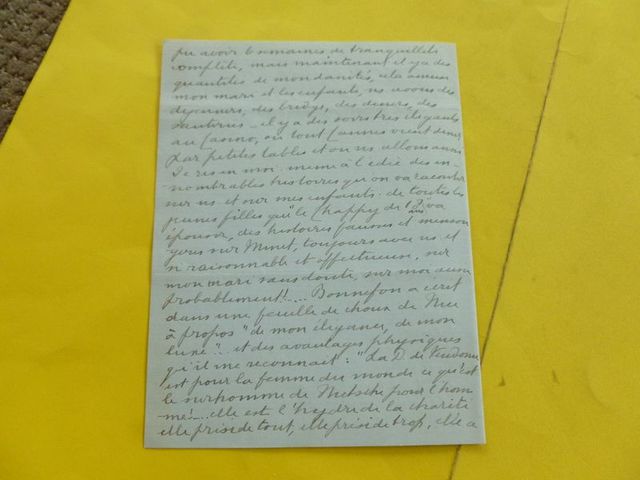 pu avoir 6 semaines de tranquillité
complète, mais maintenant il y a des
quantités de mondanités, cela amuse
mon mari et les enfants, ns avons des
dejeuners, des bridgs, des diners, des
sauteries - il y a des soirs très élégants
au Casino, où tout Cannes vient diner
par petites tables et où ns allons aussi
Je ris en moi-même à l'idée des in-
nombrables histoires qu'on va raconter
sur ns et sur mes enfants. de toutes les
jeunes filles que le Chappy de 19 ans va
épouser, des histoires fausses et menson
gères sur Minet, toujours avec ns et
si raisonnable et affectueux, sur
mon mari sans doute, sur moi aussi
probablement!!.... Bonnefon a écrit
dans une feuille de choux de Nice
à propos "de mon élégance, de mon
luxe"... et des avantages physiques
qu'il me reconnait: "La D. de Vendome
est pour la femme du monde ce qu'est
le surhomme de Nietsche pour l'hom-
me!... elle est l'hydre de la charité
elle préside tout, elle préside trop, elle a